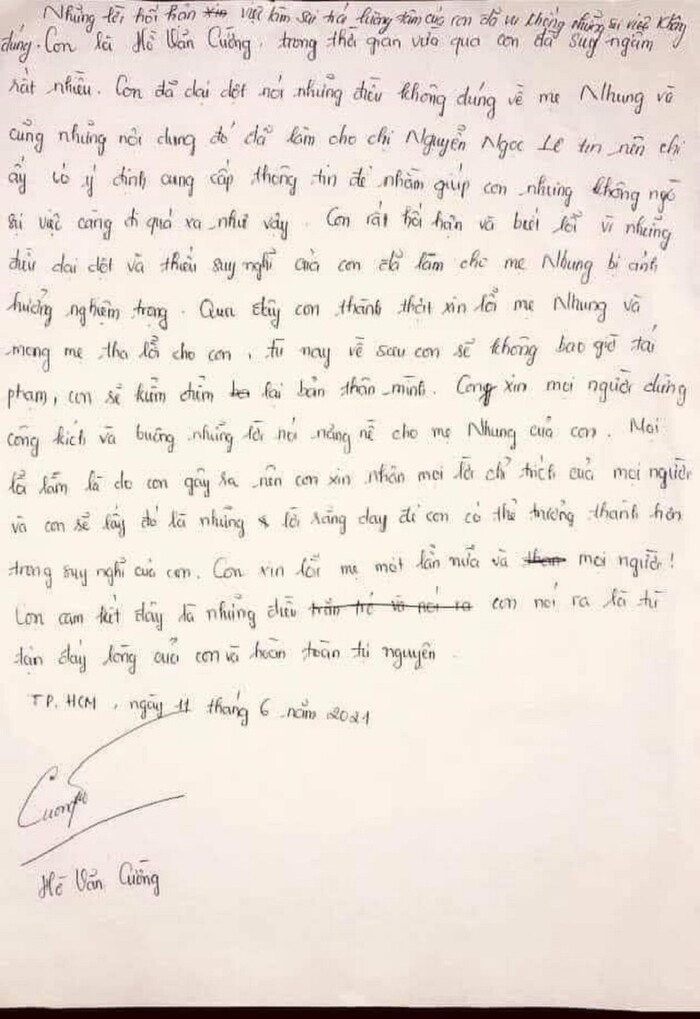 Những lời hối hận xin việc làm sai trái lương tâm của con đã vu khống những sự việc không
đúng. Con là Hồ Văn Cường, trong thời gian vừa qua con đã suy ngẫm
rất nhiều. Con đã dại dột nói những điều không đúng về mẹ Nhung và
cũng những nội dung đó đã làm cho chị Nguyễn Ngọc Lê tin nên chị
ấy có ý định cung cấp thông tin để nhằm giúp con nhưng không ngờ
sự việc càng đi quá xa như vậy. Con rất hối hận và biết lỗi vì những
điều dại dột và thiếu suy nghĩ của con đã làm cho mẹ Nhung bị ảnh
hưởng nghiêm trọng. Qua đây con thành thật xin lỗi mẹ Nhung và
mong mẹ tha lỗi cho con, từ nay về sau con sẽ không bao giờ tái
phạm, con sẽ kiểm điểm lại bản thân mình. Cong xin mọi người đừng
công kích và buông những lời nói nặng nề cho mẹ Nhung của con. Mọi
lỗi lầm là do con gây ra nên con xin nhận mọi lời chỉ trích của mọi người
và con sẽ lấy đó là những lời răng dạy để con có thể trưởng thành hơn
trong suy nghĩ của con. Con xin lỗi mẹ một lần nữa và mọi người!
Con cam kết đây là những điều trăn trở và nói ra con nói ra là từ
tận đáy lòng của con và hoàn toàn tự nguyện.
TP. HCM, ngày 11 tháng 6 năm 2021
Cường
Hồ Văn Cường